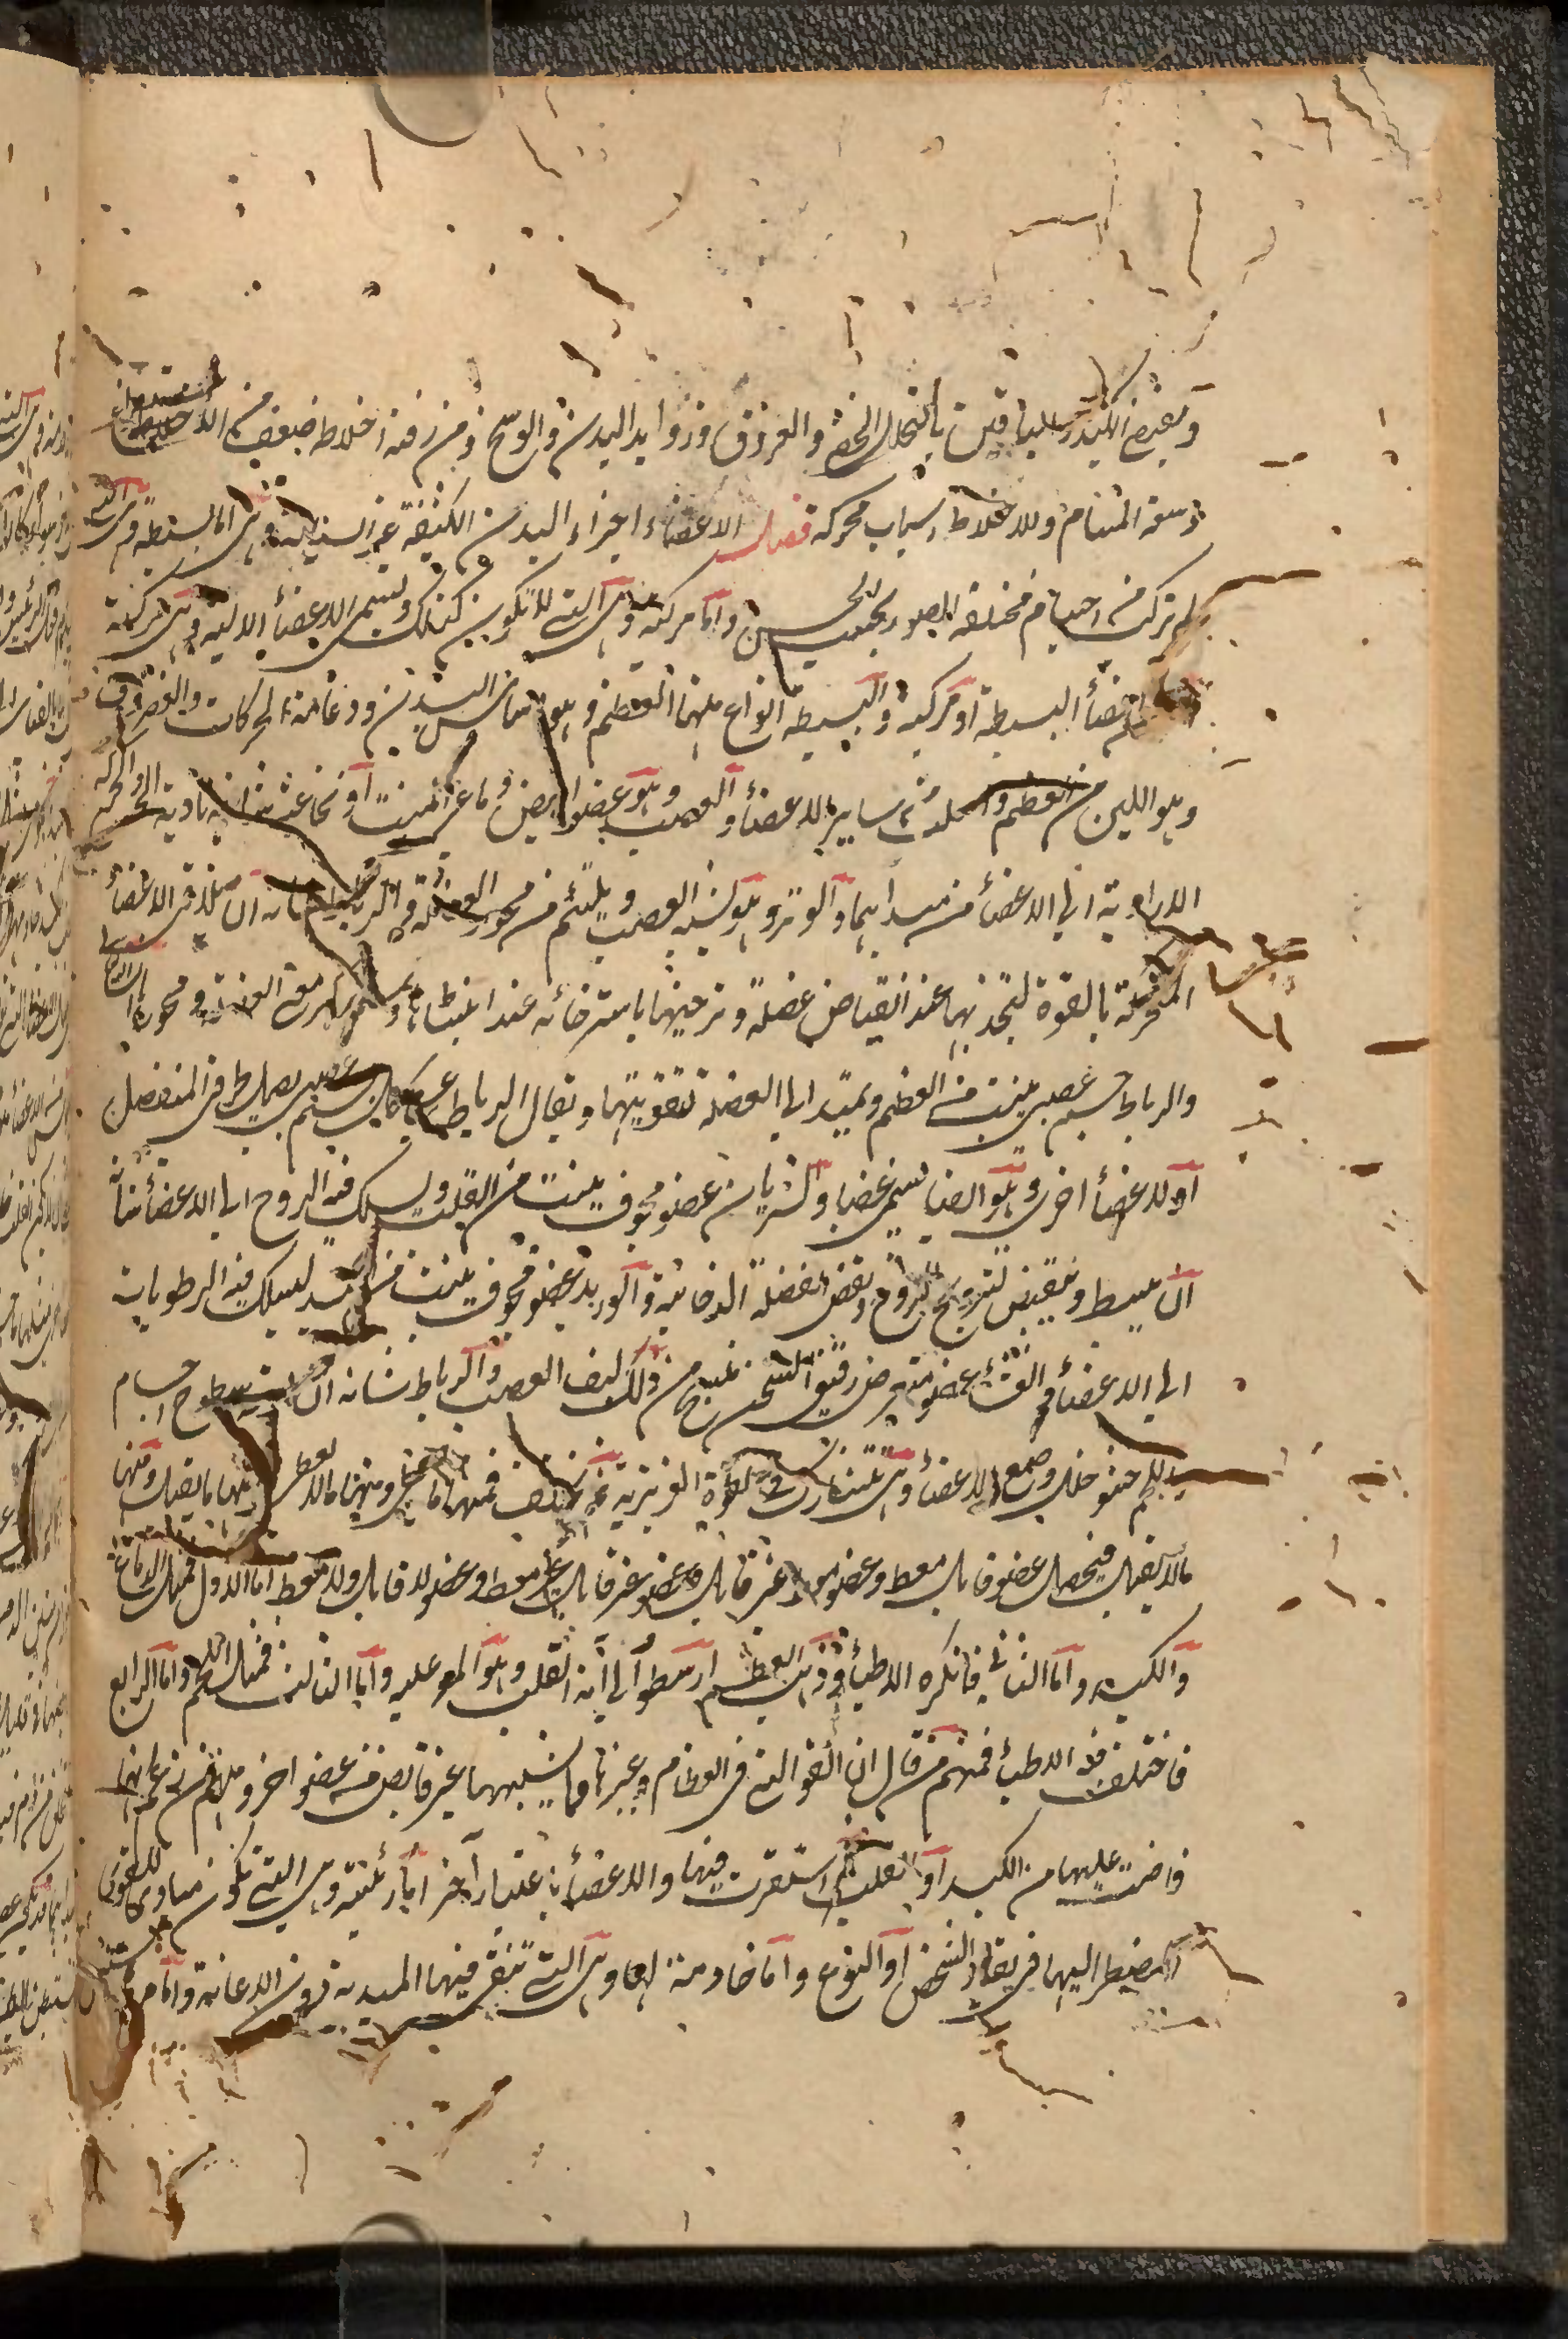 وبعض الهضم للباقين بالتحلل الخفي والعرق وزوائد البدن والوسخ ومن رقة اخلاطه ضعف من الاستفراغ
وسعة المسام وللاخلاط اسباب محركة فصل الاعضاء اجزاء البدن الكثيفة وهي اما بسيطة وهي التي
لم تركب من اجسام مختلفة الصور بحسب الحس واما مركبة وهي التي لا تكون كذلك وتسمى الاعضاء الالية وهي مركبة
من الاعضاء البسيطة او مركبة والبسيطة انواع منها العظم وهو اساس البدن ودعامة الحركات والغضروف
وهو الين من العظم واصلب من ساير الاعضاء والعصب وهو عضو ابيض دماغي المنبت او نخاعيه تادية الحس والحركة
الارادية الى الاعضاء من مبدأيهما والوتر وهو يشبه العصب ويلتئم من محور العضلة والرباط شانه ان يلاقي الاعضاء
المتحركة بالقوة لتجذبها عند انقباض عضلة وترخيها باسترخائه عند انبساطه
والرباط جسم عصبي ينبت من العظم ويمتد الى العضلة لتقويتها ويقال الرباط لكل جسم عصبي يصل طرفي المفصل
او الاعضاء اخرى وهو ايضا يسمى عصبا والشريان عضو مجوف ينبت من القلب ليسلك فيه الروح الى الاعضاء شانه
ان ينبسط وينقبض لترويح الروح ونفض الفضلة الدخانية والوريد عضو مجوف ينبت من الكبد ليسلك فيه الرطوبات
الى الاعضاء والغشاء عضو عريض رقيق الثخن نسج من ذلك ليف العصب والرباط شانه ان يغشي سطوح اجسام
واللحم حشو خلل وضع الاعضاء وهي تتشارك في القوة الغريزية ثم تختلف فمنها ما يعطي ومنها ما لا يعطي ومنها ما يقبل ومنها
ما لا يقبل فيحصل عضو قابل معط وعضو معط غير قابل وعضو قابل غير معط وعضو لا قابل ولا معط اما الاول فمثل الدماغ
والكبد واما الثاني فانكره الاطباء وذهب العظيم ارسطو الى انه القلب وهو المعول عليه واما الثالث فمثل اللحم واما الرابع
فاختلف فيه الاطباء فمنهم من قال ان القوى التي في العظام وغيرها وما يشبهها غير فائض من عضو اخر ومنهم من زعم انها
فاضت عليها من الكبد او القلب ثم استقرت فيها والاعضاء باعتبار آخر اما رئيسة وهي التي تكون مبادي للقوى
المضطر اليها في بقاء الشخص او النوع واما خادمة لها وهي التي تبقى فيها المبدئية دون الاعانة واما مرؤسة